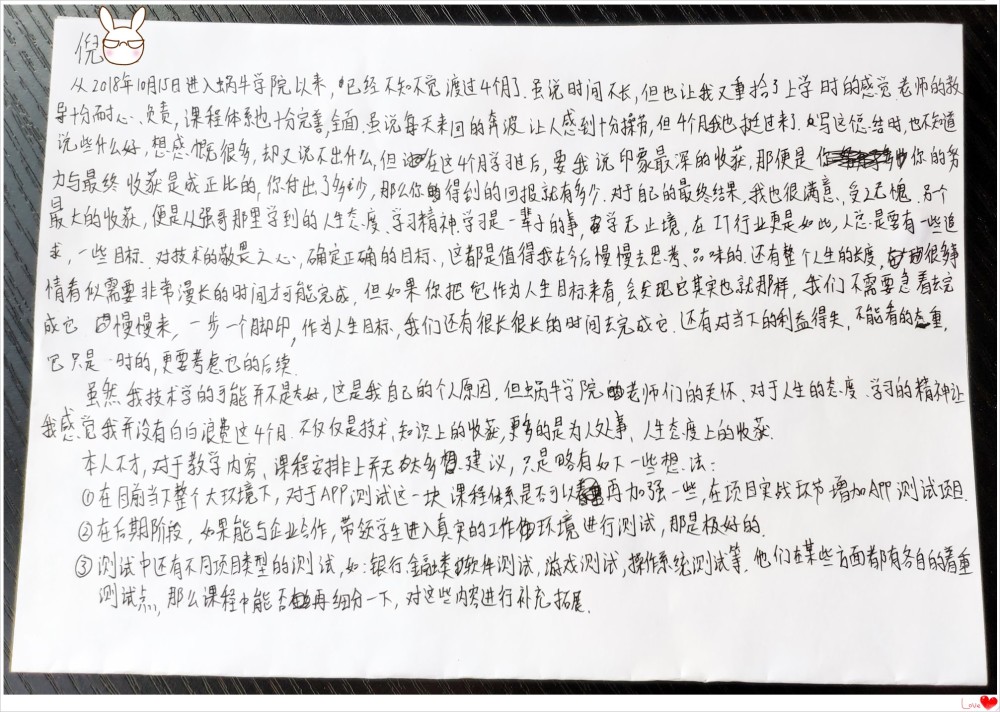 倪
从2018年10月15日进入蜗牛学院以来,已经不知不觉渡过4个月了.虽说时间不长,但也让我又重拾了上学时的感觉.老师的教
导十分耐心、负责,课程体系也十分完善,全面.虽说每天来回的奔波让人感到十分疲劳,但4个月我也挺过来了.写这总结时,也不知道
说些什么好,想感慨很多,却又说不出什么,但在这4个月学习过后,要我说印象最深的收获,那便是你的努
力与最终收获是成正比的,你付出了多少,那么你得到的回报就有多少.对于自己的最终结果,我也很满意,受之无愧.另个
最大的收获,便是从强哥那里学到的人生态度、学习精神.学习是一辈子的事,学无止境,在IT行业更是如此,人总是要有一些追
求,一些目标.对技术的敬畏之心,确定正确的目标,这都是值得我在今后慢慢去思考、品味的.还有整个人生的长度,很多事
情看似需要非常漫长的时间才可能完成,但如果你把它作为人生目标来看,会发现它其实也就那样,我们不需要急着去完
成它,慢慢来,一步一个脚印,作为人生目标,我们还有很长很长的时间去完成它.还有对当下的利益得失,不能看的太重,
它只是一时的,更要考虑它的后续.
虽然我技术学的可能并不是太好,这是我自己的个人原因.但蜗牛学院老师们的关怀、对于人生的态度、学习的精神让
我感觉我并没有白白浪费这4个月.不仅仅是技术,知识上的收获,更多的是为人处事、人生态度上的收获.
本人不才,对于教学内容、课程安排上并无太多建议,只是略有如下一些想法:
①在目前当下整个大环境下,对于APP测试这一块课程体系是否可以再加强一些,在项目实战环节增加APP测试项目.
②在后期阶段,如果能与企业合作,带领学生进入真实的工作环境进行测试,那是极好的.
③测试中还有不同项目类型的测试,如:银行金融类软件测试,游戏测试,操作系统测试等.他们在某些方面都有各自的着重
测试点,那么课程中能否再细分一下,对这些内容进行补充拓展.
Love